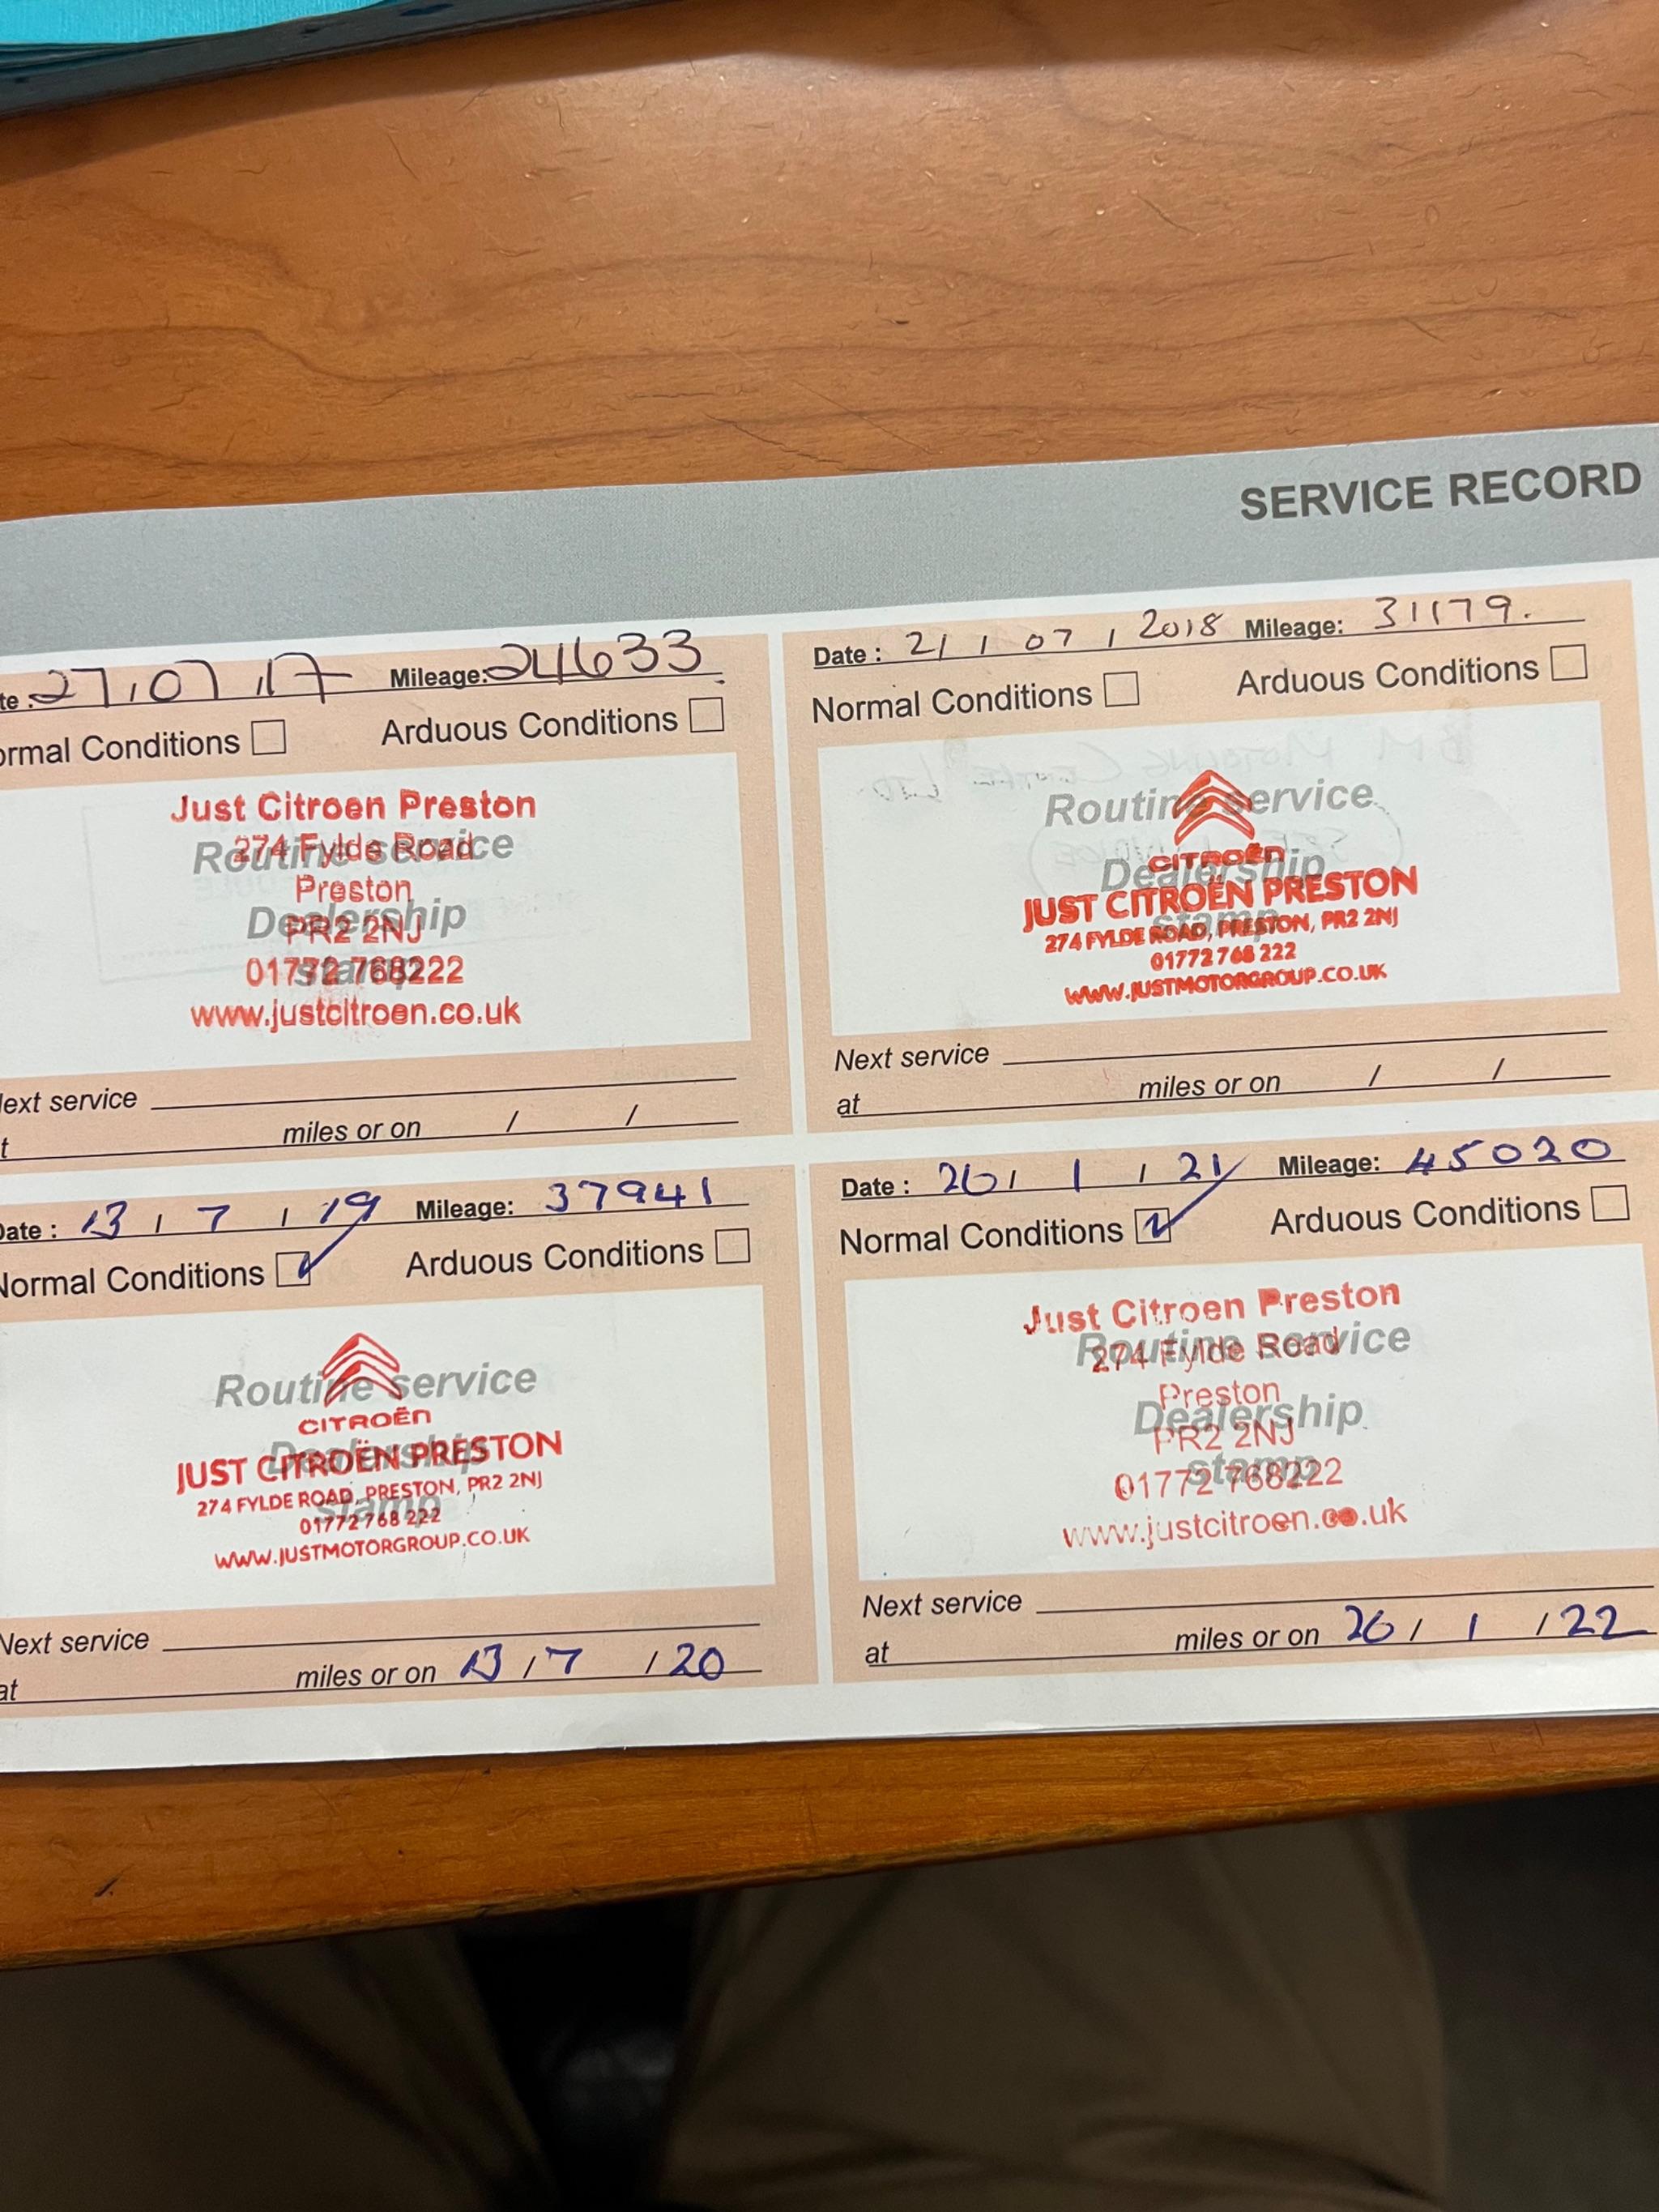 SERVICE RECORD
te : 27 / 07 / 17 Mileage: 24633
ormal Conditions Arduous Conditions
Just Citroen Preston
Routine service
274 Fylde Road
Preston
Dealership
PR2 2NJ
stamp
01772 768222
www.justcitroen.co.uk
ext service
t miles or on / /
Date : 21 / 07 / 2018 Mileage: 31179.
Normal Conditions Arduous Conditions
Routine service
CITROËN
Dealership
JUST CITROËN PRESTON
stamp
274 FYLDE ROAD, PRESTON, PR2 2NJ
01772 768 222
WWW.JUSTMOTORGROUP.CO.UK
Next service
at miles or on / /
Date : 13 / 7 / 19 Mileage: 37941
Normal Conditions Arduous Conditions
Routine service
CITROËN
Dealership
JUST CITROËN PRESTON
274 FYLDE ROAD, PRESTON, PR2 2NJ
stamp
01772 768 222
WWW.JUSTMOTORGROUP.CO.UK
Next service
at miles or on 13 / 7 / 20
Date : 26 / 1 / 21 Mileage: 45020
Normal Conditions Arduous Conditions
Just Citroen Preston
Routine service
274 Fylde Road
Preston
Dealership
PR2 2NJ
stamp
01772 768222
www.justcitroen.co.uk
Next service
at miles or on 26 / 1 / 22